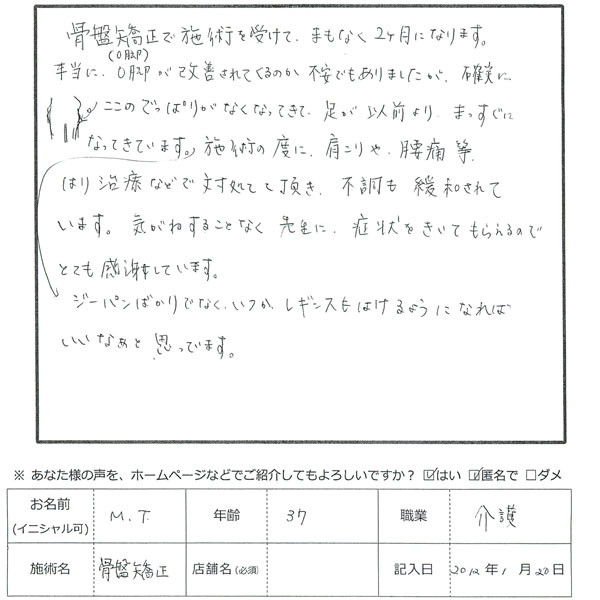 骨盤矯正で施術を受けて、まもなく2ヶ月になります。
(O脚)
本当に、O脚が改善されてくるのか不安でもありましたが、確実に
ここのでっぱりがなくなってきて、足が以前より、まっすぐに
なってきています。施術の度に、肩こりや、腰痛等、
はり治療などで対処してて頂き、不調も緩和されて
います。気がねすることなく先生に、症状をきいてもらえるので
とても感謝しています。
ジーパンばかりでなく、いつか、レギンスもはけるようになれば
いいなぁと思っています。
※ あなた様の声を、ホームページなどでご紹介してもよろしいですか? ☑はい ☑匿名で □ダメ
お名前 (イニシャル可) M.T. 年齢 37 職業 介護
施術名 骨盤矯正 店舗名(必須) 記入日 2012年1月20日